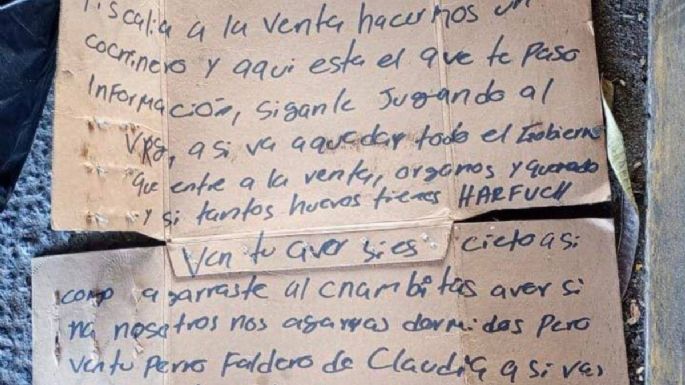 Fiscalia a la venta hacermos un
cochinero y aqui esta el que te paso
informacion, siganle jugando al
Vrg, asi va aquedar todo el Gobierno
que entre a la venta, organos y
y si tantos huevos tienes HARFUCH
Ven tu aver si es cieto asi
como agarraste al chambitas aver si
na nosotros nos agarras dormidos pero
ven tu perro Faldero de Claudia asi vas